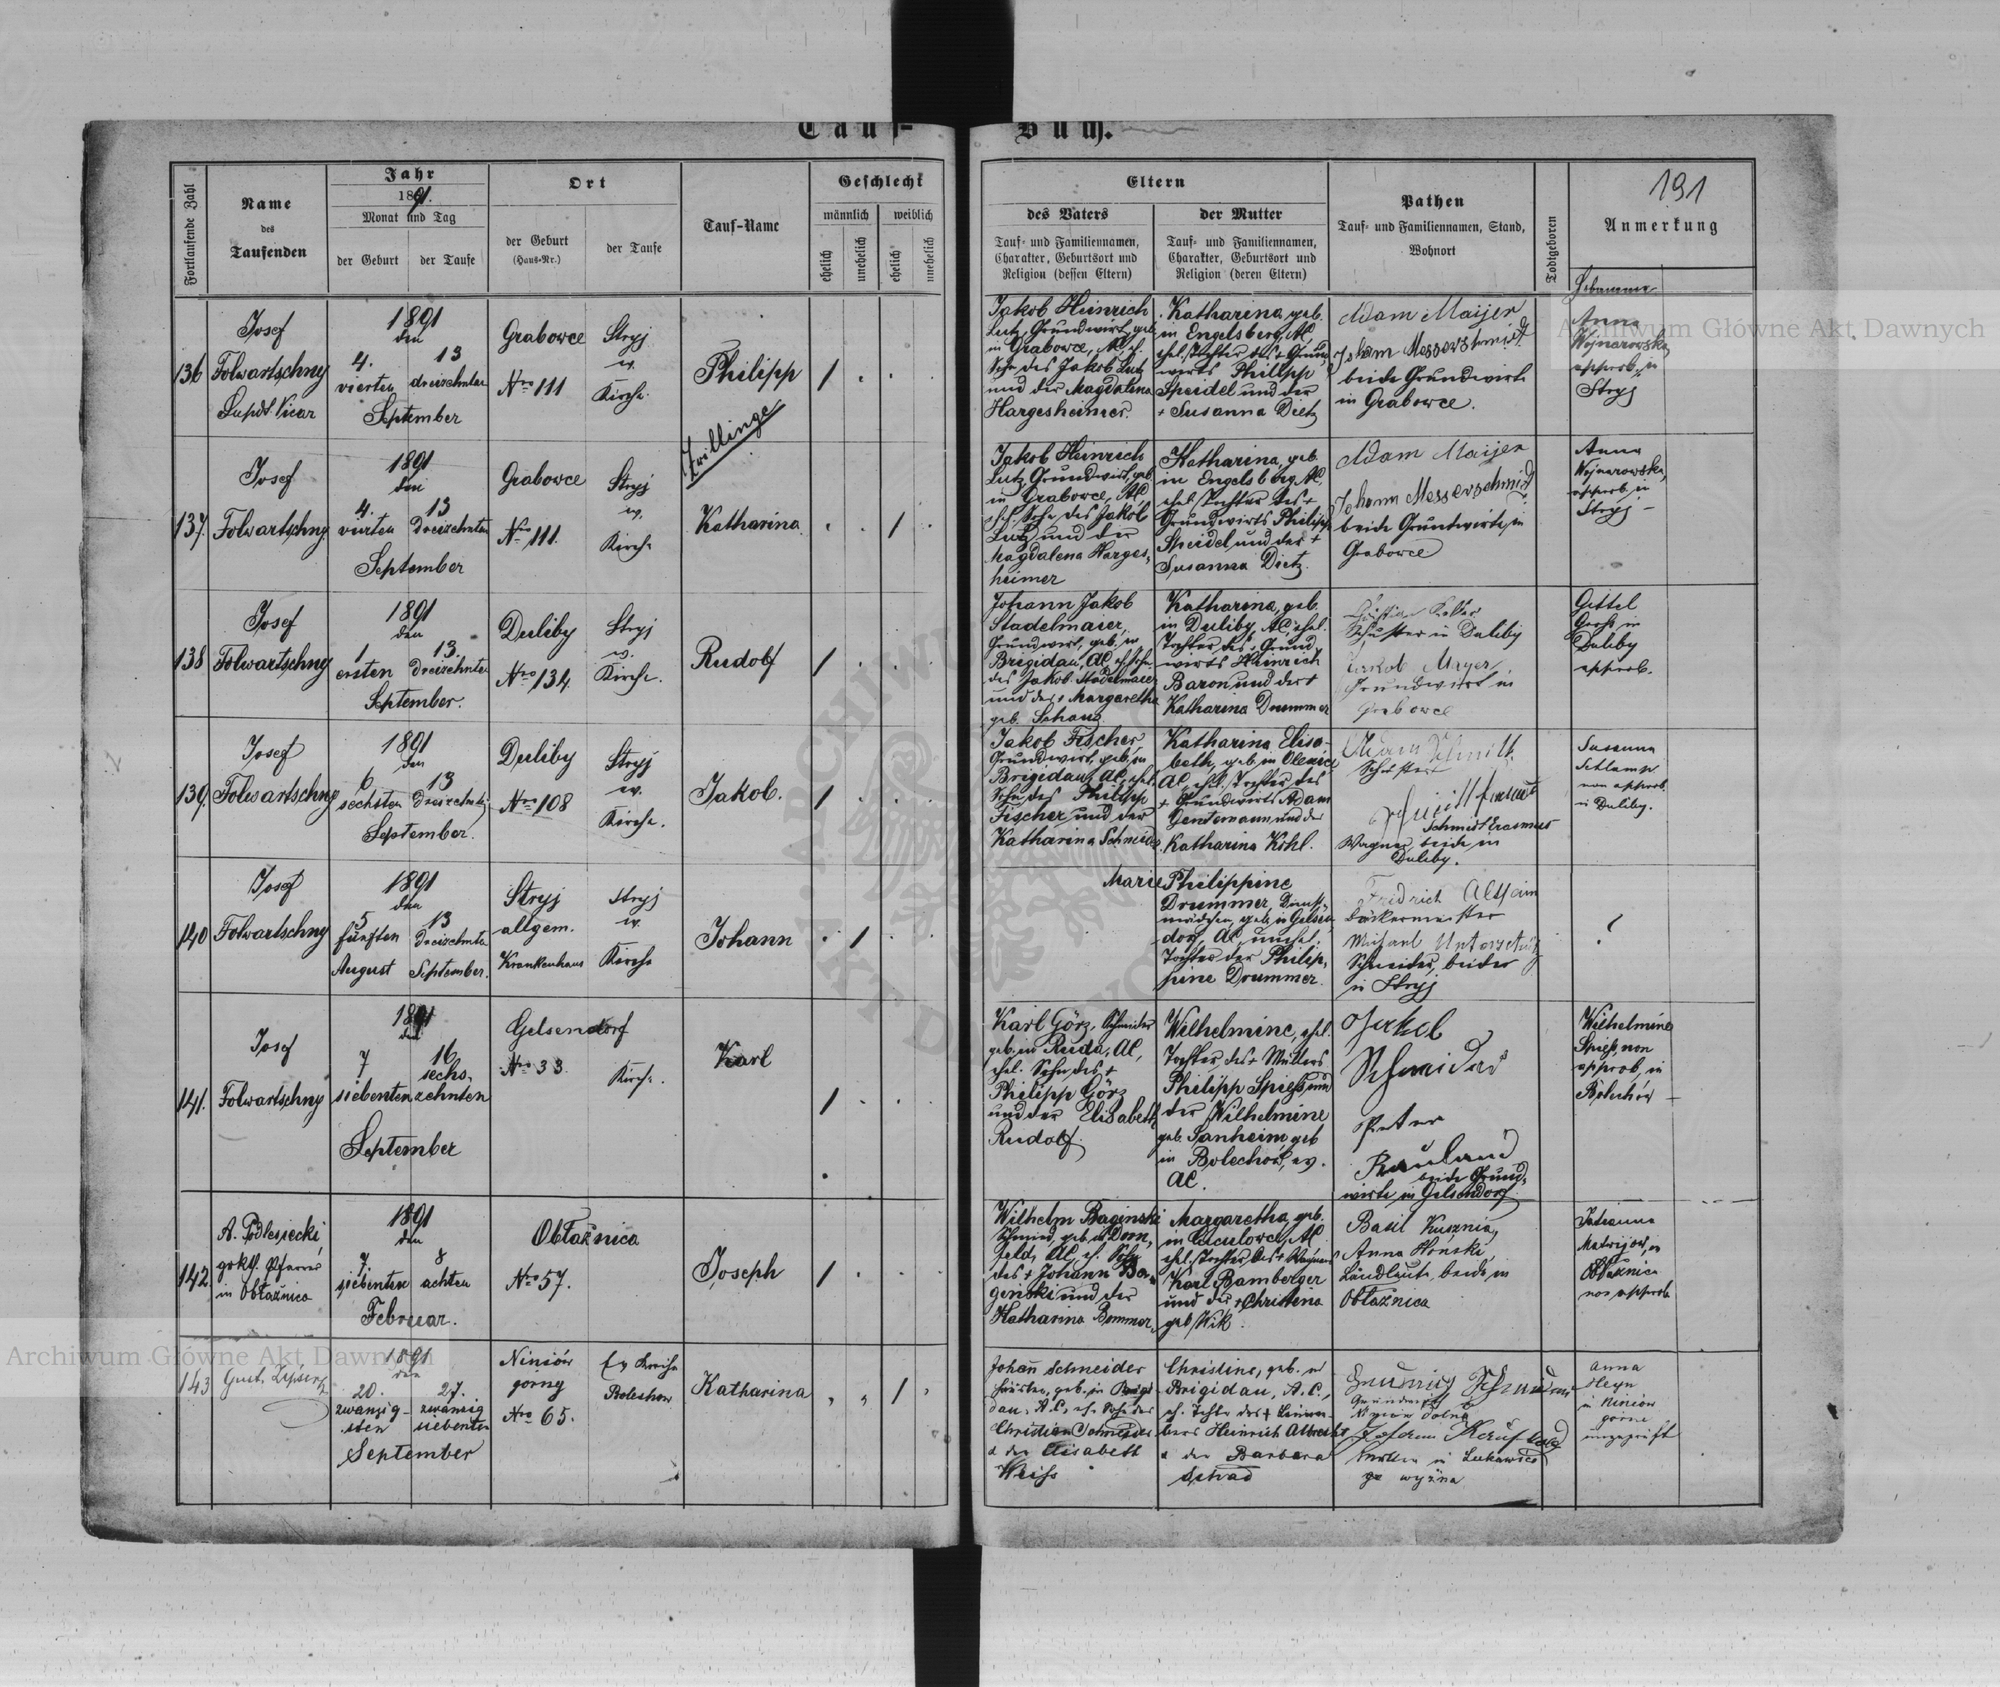 Tauf-Buch.
191
Fortlaufende Zahl
Name
des
Taufenden
Jahr
1891.
Monat und Tag
der Geburt
der Taufe
Ort
der Geburt
(Haus-Nr.)
der Taufe
Tauf-Name
Geschlecht
männlich
weiblich
ehelich
unehelich
ehelich
unehelich
Eltern
des Vaters
Tauf- und Familiennamen,
Charakter, Geburtsort und
Religion (dessen Eltern)
der Mutter
Tauf- und Familiennamen,
Charakter, Geburtsort und
Religion (deren Eltern)
Pathen
Tauf- und Familiennamen, Stand,
Wohnort
Todtgeboren
Anmerkung
Hebamme
136
Josef
Folwartschny
Supdt. Vicar
1891
den
4.
vierten
13
dreizehnten
September
Grabowce
Nro 111
Stryj
ev.
Kirche.
Philipp
Jakob Heinrich
Lutz, Grundwirt, geb.
in Grabowce, AC, eh.
Sohn des Jakob Lutz
und der Magdalena
Hargesheimer.
Katharina, geb.
in Engelsberg, AC,
ehel. Tochter des + Grund
wirts Philipp
Speidel und der
+ Susanna Dietz
Adam Maijer
Johann Messerschmidt
beide Grundwirte
in Grabowce.
Anna
Wojnarowska,
approb. in
Stryj
Zwillinge
137.
Josef
Folwartschny
1891
den
4.
vierten
13
Dreizehnten
September
Grabowce
Nro 111.
Stryj
ev.
Kirche
Katharina
Jakob Heinrich
Lutz, Grundwirt, geb.
in Grabowce, AC
ehl. Sohn des Jakob
Lutz und der
Magdalena Harges-
heimer
Katharina, geb.
in Engelsberg AC,
ehel. Tochter des +
Grundwirts Philipp
Speidel und der +
Susanna Dietz.
Adam Maijer
Johann Messerschmidt
beide Grundwirte, in
Grabowce
Anna
Wojnarowska,
approb. in
Stryj -
138
Josef
Folwartschny
1891
den
1.
ersten
13.
Dreizehnten
September.
Duliby
Nro 134.
Stryj
ev.
Kirche.
Rudolf
Johann Jakob
Stadelmaier,
Grundwirt, geb. in
Brigidau, AC, eh. Sohn
des Jakob Stadelmaier
und der + Margaretha
geb. Schanz
Katharina, geb.
in Duliby, AC, ehel.
Tochter des + Grund
wirts Heinrich
Baron und der +
Katharina Drummer
Schuster in Duliby
Jakob Mayer,
Grundwirt in
Grabowce
Gittel
Groß in
Duliby
approb.
139.
Josef
Folwartschny
1891
den
6
sechsten
13
Dreizehnten
September.
Duliby
Nro 108
Stryj
ev.
Kirche.
Jakob.
Jakob Fischer
Grundwirt, geb. in
Brigidau, AC, ehel.
Sohn des Philipp
Fischer und der
Katharina Schneider
Katharina Elisa-
beth, geb. in Olexice
AC, ehl. Tochter des
+ Grundwirts Adam
Gentemann und der
Katharina Kohl.
Adam Schmitt
Schuster
Schmidt Erasmus
Wagner beide in
Duliby.
Susanna
Schlamp
non approb.
in Duliby.
140
Josef
Folwartschny
1891
den
5
fünften
August
13
Dreizehnten
September.
Stryj
allgem.
Krankenhaus
Stryj
ev.
Kirche
Johann
Marie Philippine
Drummer, Dienst-
mädchen, geb. in Gelsen
dorf, AC, unehel.
Tochter der Philip-
pine Drummer.
Fridrich Altheim
Bäckermeister
Michael
Schneider, beide
in Stryj
?
141.
Josef
Folwartschny
1891
den
7
siebenten
16
sechs-
zehnten
September
Gelsendorf
Nro 33.
Kirche.
Karl
Karl Görz, Schneider
geb. in Ruda, AC,
ehel. Sohn des +
Philipp Görz
und der Elisabeth
Rudolf.
Wilhelmine, ehel.
Tochter des + Müllers
Philipp Spieß und
der Wilhelmine
geb. Sanheim, geb
in Bolechow, ev.
AC.
Jakob
Schneider
Peter
Rauland
beide Grund-
wirte in Gelsendorf.
Wilhelmine
Spieß, non
approb, in
Bolechów -
142
A. Podlesiecki,
grkt. Pfarrer
in Obłaźnica
1891
den
7.
siebenten
8
achten
Februar.
Obłaźnica
Nro 57.
Joseph
Wilhelm Baginski
Schmied, geb. in Dorn-
feld, AC, eh. Sohn
des + Johann Ba-
ginski und der
Katharina Bommer
Margaretha, geb.
in Cuculowce, AC
ehel. Tochter des + Wagners
Karl Bamberger
und der + Christina
geb Wik.
Basil Kusznia,
Anna Hoński,
Landleute, beide in
Obłaźnica
Matwijów, in
Obłaźnica
non approb.
143
Gust. Lipsers
1891
den
20.
zwanzig-
sten
27.
zwanzig
siebenten
September
Niniów
gorny
Nro 65.
Ev. Kirche
Bolechow
Katharina
Johann Schneider
geb. in Brigi
dau, A.C., eh. Sohn des
Christian Schneider
u der Elisabeth
Weiss
Christine, geb. in
Brigidau, A.C.,
eh. Tochter des +
Heinrich Albrecht
u der Barbara
Schad
Grundwirt
in Łukawica
wyżna
Anna
Heyn
in Niniów
górne
ungeprüft
Archiwum Główne Akt Dawnych
Archiwum Główne Akt Dawnych